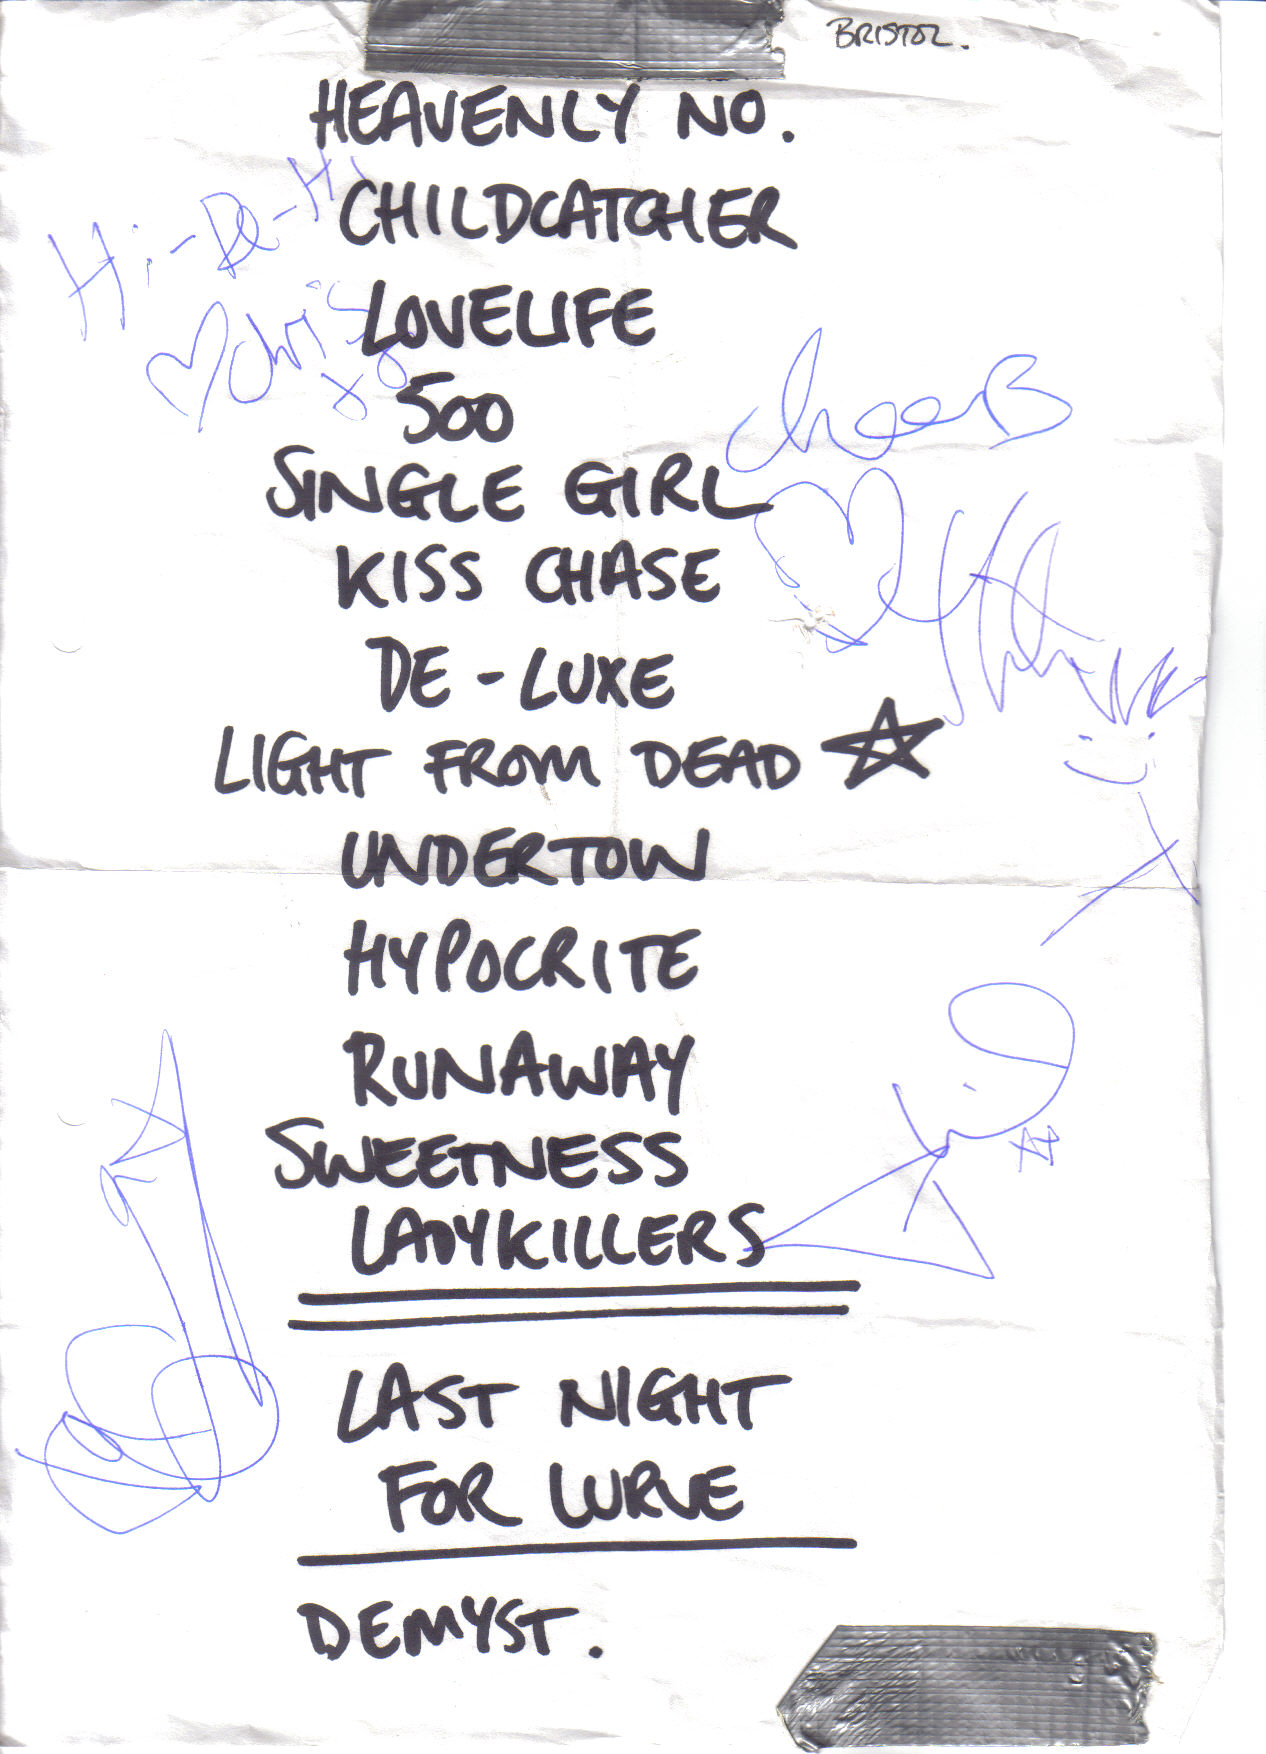 BRISTOL.
HEAVENLY NO.
CHILDCATCHER
Hi-De-Hi
LOVELIFE
Chris x
500
cheers
SINGLE GIRL
KISS CHASE
DE-LUXE
LIGHT FROM DEAD ☆
UNDERTOW
HYPOCRITE
RUNAWAY
SWEETNESS
LADYKILLERS
LAST NIGHT
FOR LURVE
DEMYST.